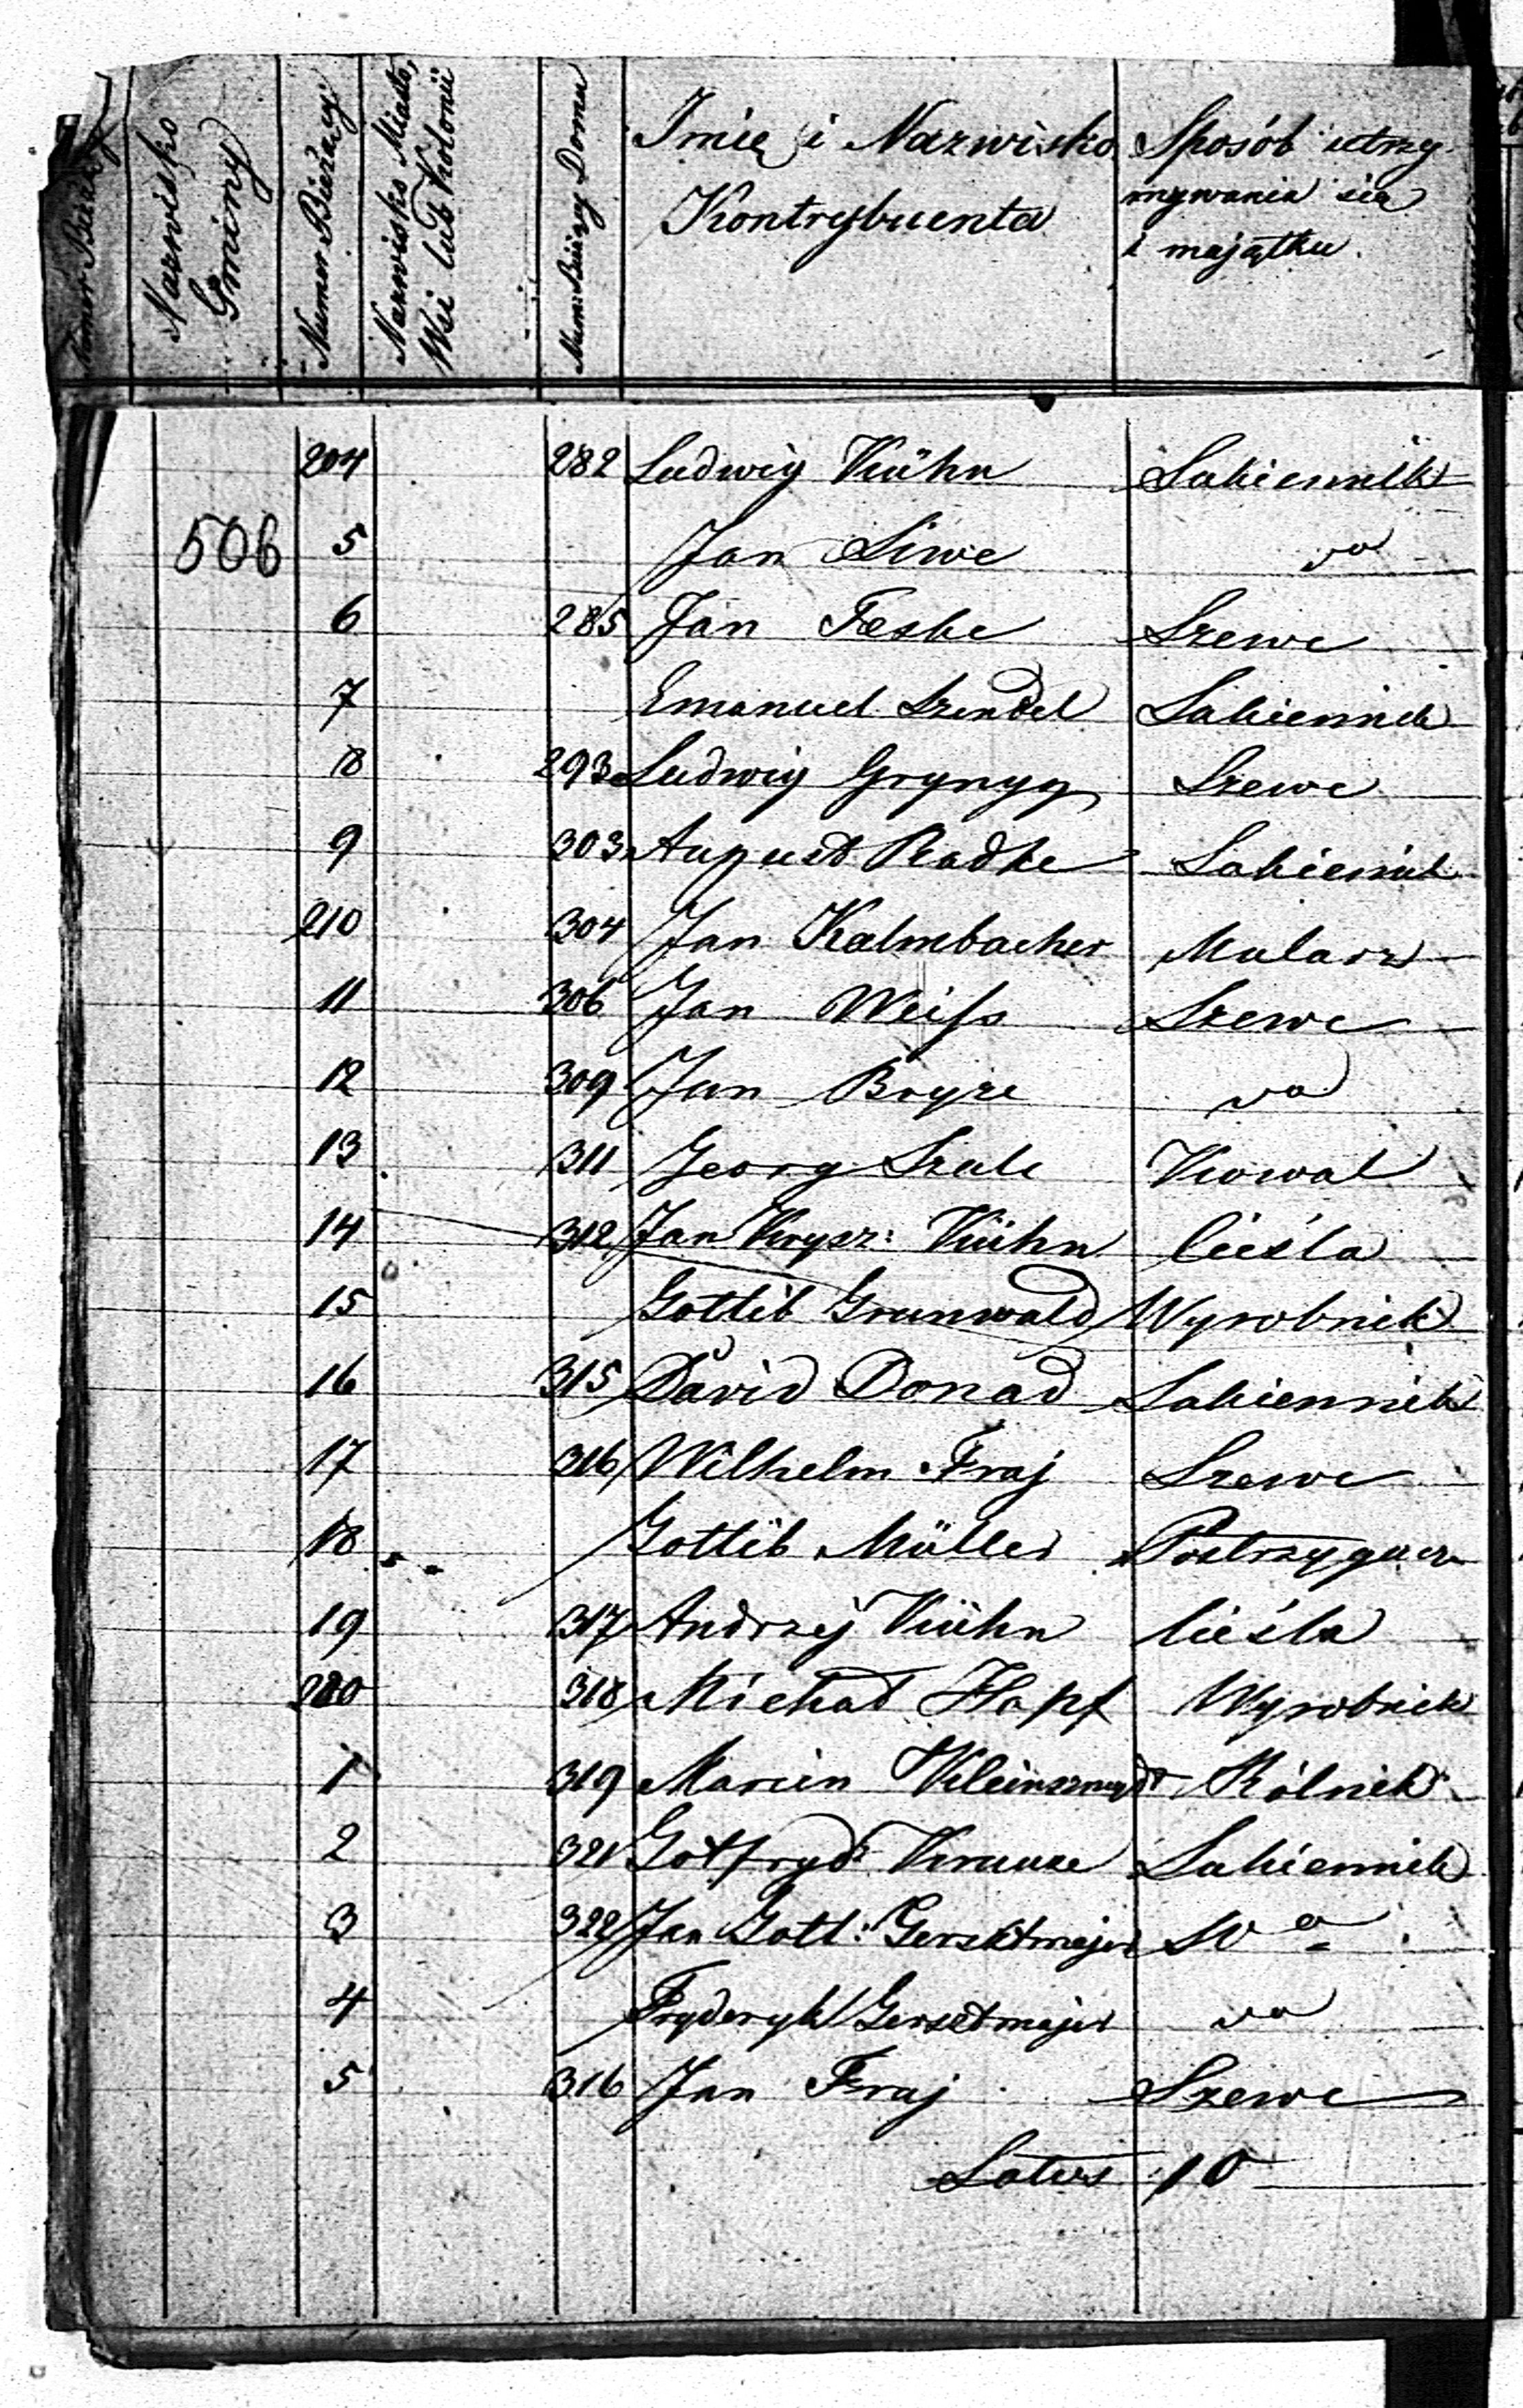 Numer Bieżący
Nazwisko Gminy
Numer Bieżący
Nazwisko Miasta, Wsi lub Kolonii
Num: Bieżący Domu
Imie i Nazwisko Kontrybuenta
Sposób utrzymywania się i majątku.
204 282 Ludwig Kühn Sukiennik
506 5 Jan Liwe do
6 285 Jan Feske Szewc
7 Emanuel Szendel Sukiennik
8 293 Ludwig Grynyg Szewc
9 303 August Radke Sukiennik
210 304 Jan Kalmbacher Mularz
11 306 Jan Weiss Szewc
12 309 Jan Bryze do
13 311 Georg Szulc Kowal
14 312 Jan Krysz: Kühn Cieśla
15 Gottlib Grunwald Wyrobnik
16 315 David Donad Sukiennik
17 316 Wilhelm Fraj Szewc
18 Gottlib Müller Postrzygacz
19 317 Andrzej Kühn Cieśla
220 318 Michał Hopf Wyrobnik
1 319 Marcin Kleinszmydt Rólnik
2 321 Gotfryd Krauze Sukiennik
3 322 Jan Gott: Gersztmajer do
4 Fryderyk Gersztmajer do
5 316 Jan Fraj Szewc
Latus 10